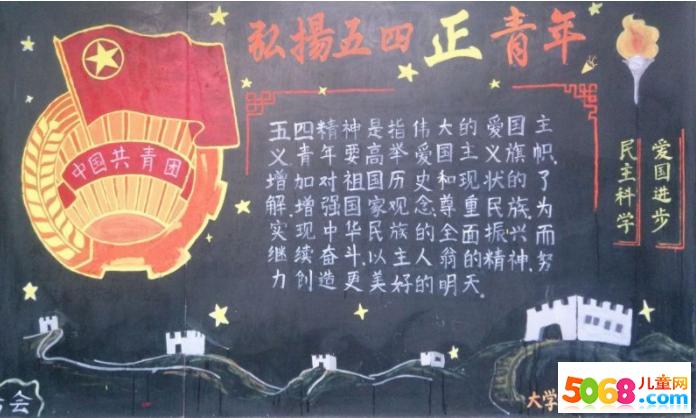 弘揚五四正青年
中国共青团
五四精神是指伟大的爱国主
义.青年要高举爱国主义旗帜.
增加对祖国历史和现状的了
解.增强国家观念.尊重民族.为
实现中华民族的全面振兴而
继续奋斗.以主人翁的精神.努
力创造更美好的明天.
爱国进步
民主科学
会
大学
5068儿童网
.com